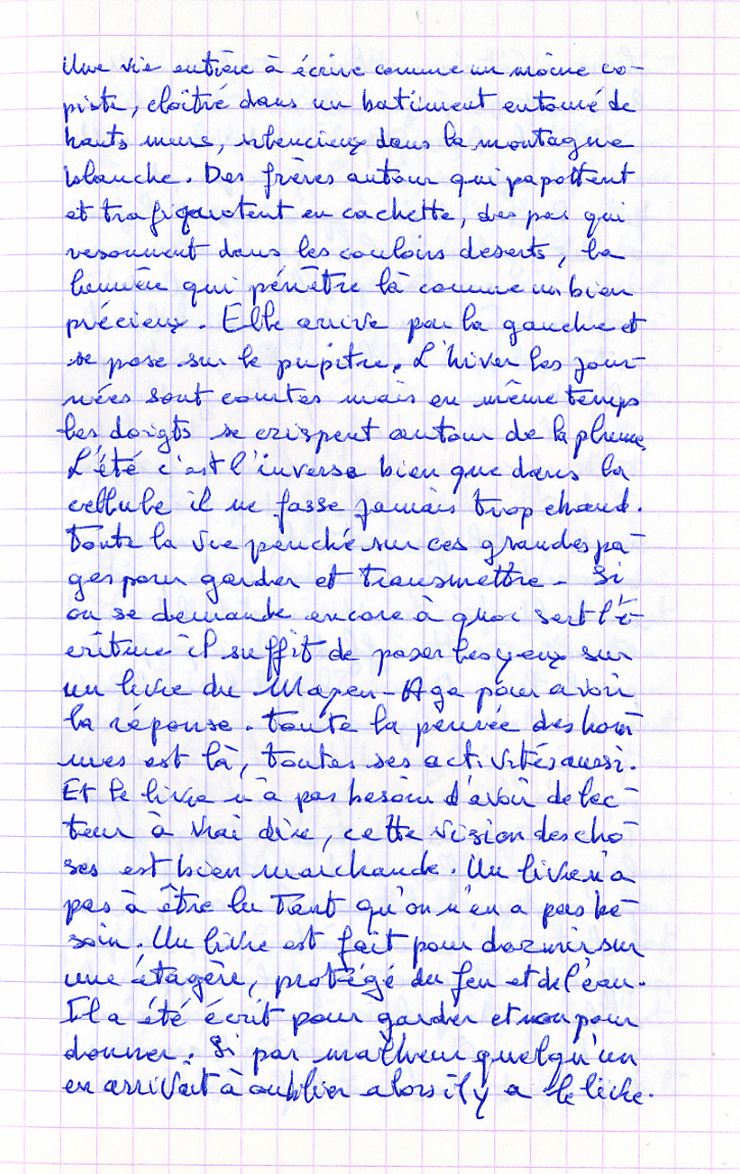 Une vie entière à écrire comme un moine co-
piste, cloîtré dans un batiment entouré de
hauts murs, silencieux dans la montagne
blanche. Des frères autour qui papottent
et trafiquotent en cachette, des pas qui
résonnent dans les couloirs deserts, la
lumière qui pénètre là comme un bien
précieux. Elle arrive par la gauche et
se pose sur le pupitre. L'hiver les jour-
nées sont courtes mais en même temps
les doigts se crispent autour de la plume.
L'été c'est l'inverse bien que dans la
cellule il ne fasse jamais trop chaud.
Toute la vie penché sur ces grandes pa-
ges pour garder et transmettre. Si
on se demande encore à quoi sert l'é-
criture il suffit de poser les yeux sur
un livre du Moyen-Age pour avoir
la réponse. Toute la pensée des hom-
mes est là, toutes ses activités aussi.
Et le livre n'a pas besoin d'avoir de lec-
teur à vrai dire, cette vision des cho-
ses est bien marchande. Un livre n'a
pas à être lu tant qu'on n'en a pas be-
soin. Un livre est fait pour dormir sur
une étagère, protégé du feu et de l'eau.
Il a été écrit pour garder et non pour
donner. Si par malheur quelqu'un
en arrivait à oublier alors il y a le livre.